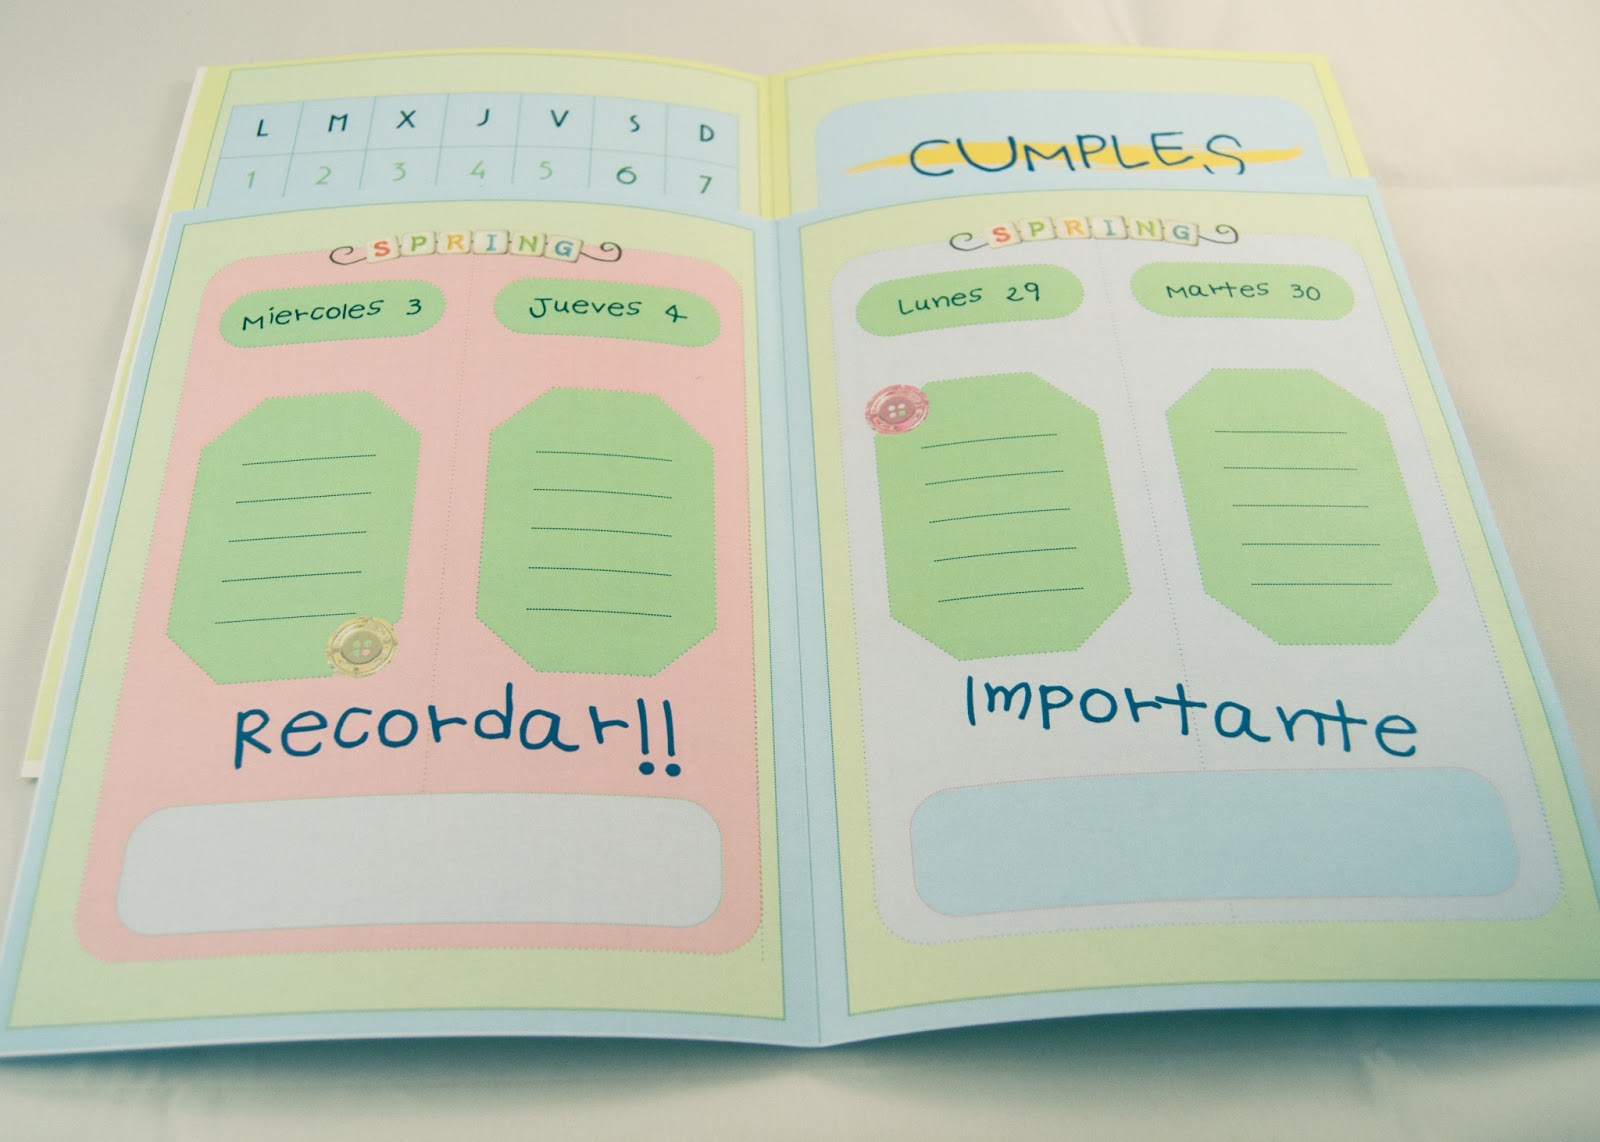 L M X J V S D
1 2 3 4 5 6 7
CUMPLES
SPRING
Miercoles 3 Jueves 4
Recordar!!
SPRING
Lunes 29 Martes 30
Importante